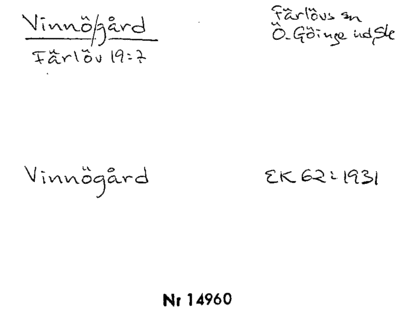 Vinnö/gård
Färlöv 19:7
Färlövs sn
Ö. Göinge hd, Sk
Vinnögård
EK 62:1931
Nr 14960